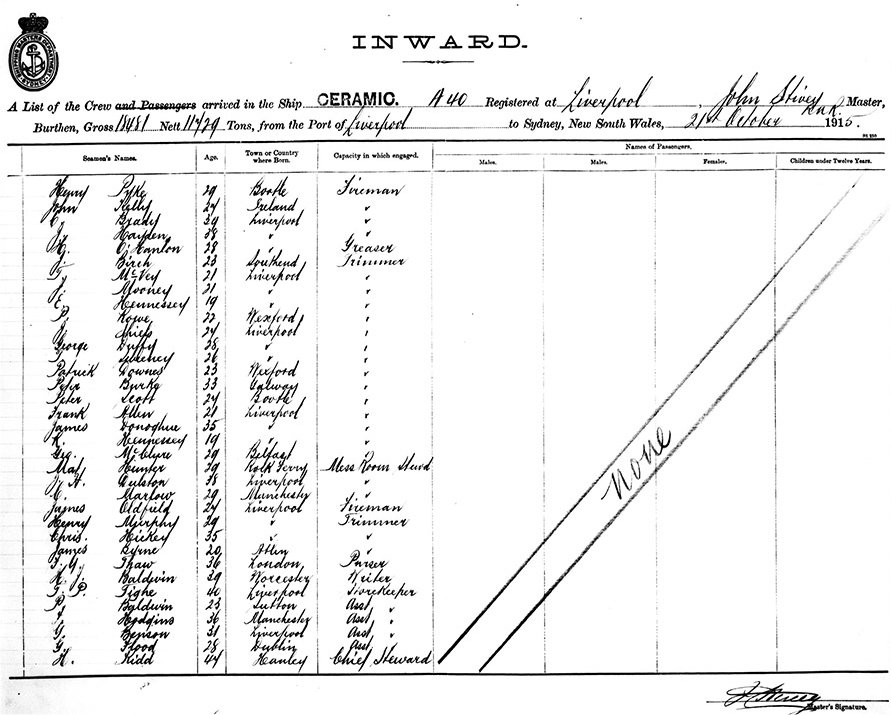 INWARD.
A List of the Crew and Passengers arrived in the Ship CERAMIC. A 40 Registered at Liverpool, John Stivey R.N.R. Master,
Burthen, Gross 18481 Nett 11729 Tons, from the Port of Liverpool to Sydney, New South Wales, 21st October 1915.
Seamen's Names. Age. Town or Country where Born. Capacity in which engaged. Names of Passengers.
Males. Males. Females. Children under Twelve Years.
Henry Pyke 29 Bootle Fireman
John Kelly 24 Ireland "
C. Brady 39 Liverpool "
J. Hayden 38 " "
H. O'Hanlon 28 " Greaser
J. Birch 23 Southend Trimmer
McVey 21 Liverpool "
J. Mooney 21 " "
E. Hennessey 19 " "
P. Rowe 22 Wexford "
J. 24 Liverpool "
George Duffy 28 " "
Sweeney 26 " "
Patrick Downes 23 Wexford "
Peter Burke 33 Galway "
Peter Scott 24 Bootle "
Frank Allen 21 Liverpool "
James Donoghue 35 " "
K. Hennessey 19 " "
Geo. McClure 29 Belfast "
Mat. Hunter 39 Mess Room Stewd
J. H. Culston 38 Liverpool "
C. Marlow 29 Manchester "
James Oldfield 24 Liverpool Fireman
Henry Murphy 29 " Trimmer
Chris. Hickey 35 " "
James Byrne 20 "
Thaw 36 London Purser
H. J. Baldwin 39 Worcester Writer
T. P. Tighe 40 Liverpool Storekeeper
P. Baldwin 23 Sutton Asst "
Hodgins 36 Manchester Asst "
G. Benson 31 Liverpool Asst "
G. Flood 28 Dublin Asst
H. Kidd 44 Hanley Chief Steward
none
Master's Signature.